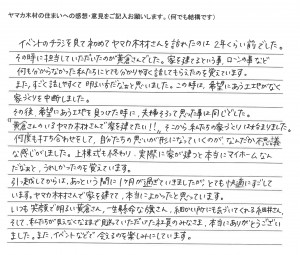 ヤマカ木材の住まいへの感想・意見をご記入お願いします。(何でも結構です)
イベントのチラシを見て初めてヤマカ木材さんを訪れたのは2年くらい前でした。
その時に担当していただいたのが黄倉さんでした。家を建てるという事、ローンの事など
何も分からなかった私たちにとても分かりやすく話してもらえたのを覚えています。
また、すごく話しやすくて明るい方だなぁと思いました。この時は、希望にあう土地がなくて
家づくりを中断しました。
その後、希望にあう土地を見つけた時に、夫婦そろって思った事は同じでした。
"黄倉さんのいるヤマカ木材さんで家を建てたい!!"そこから私たちの家づくりははじまりました。
何度も打ち合わせをして、自分たちの思いが形になっていくのが、なんだか不思議
な感じがしました。上棟式も終わり、実際に家が建つと本当にマイホームなん
だなぁと、うれしかったのを覚えています。
引っ越してからは、あっという間に1ヶ月が過ぎていきましたが、とても快適にすごして
います。ヤマカ木材さんで家を建て、本当によかったと思っています。
いつも笑顔で明るい黄倉さん、一生懸命な
さん、細かい所にも気づいてくれる
さん
そして、私たちが見えなくなるまで見送っていただいた社員のみなさま、本当にありがとうござい
ました。また、イベントなどで会えるのを楽しみにしています。